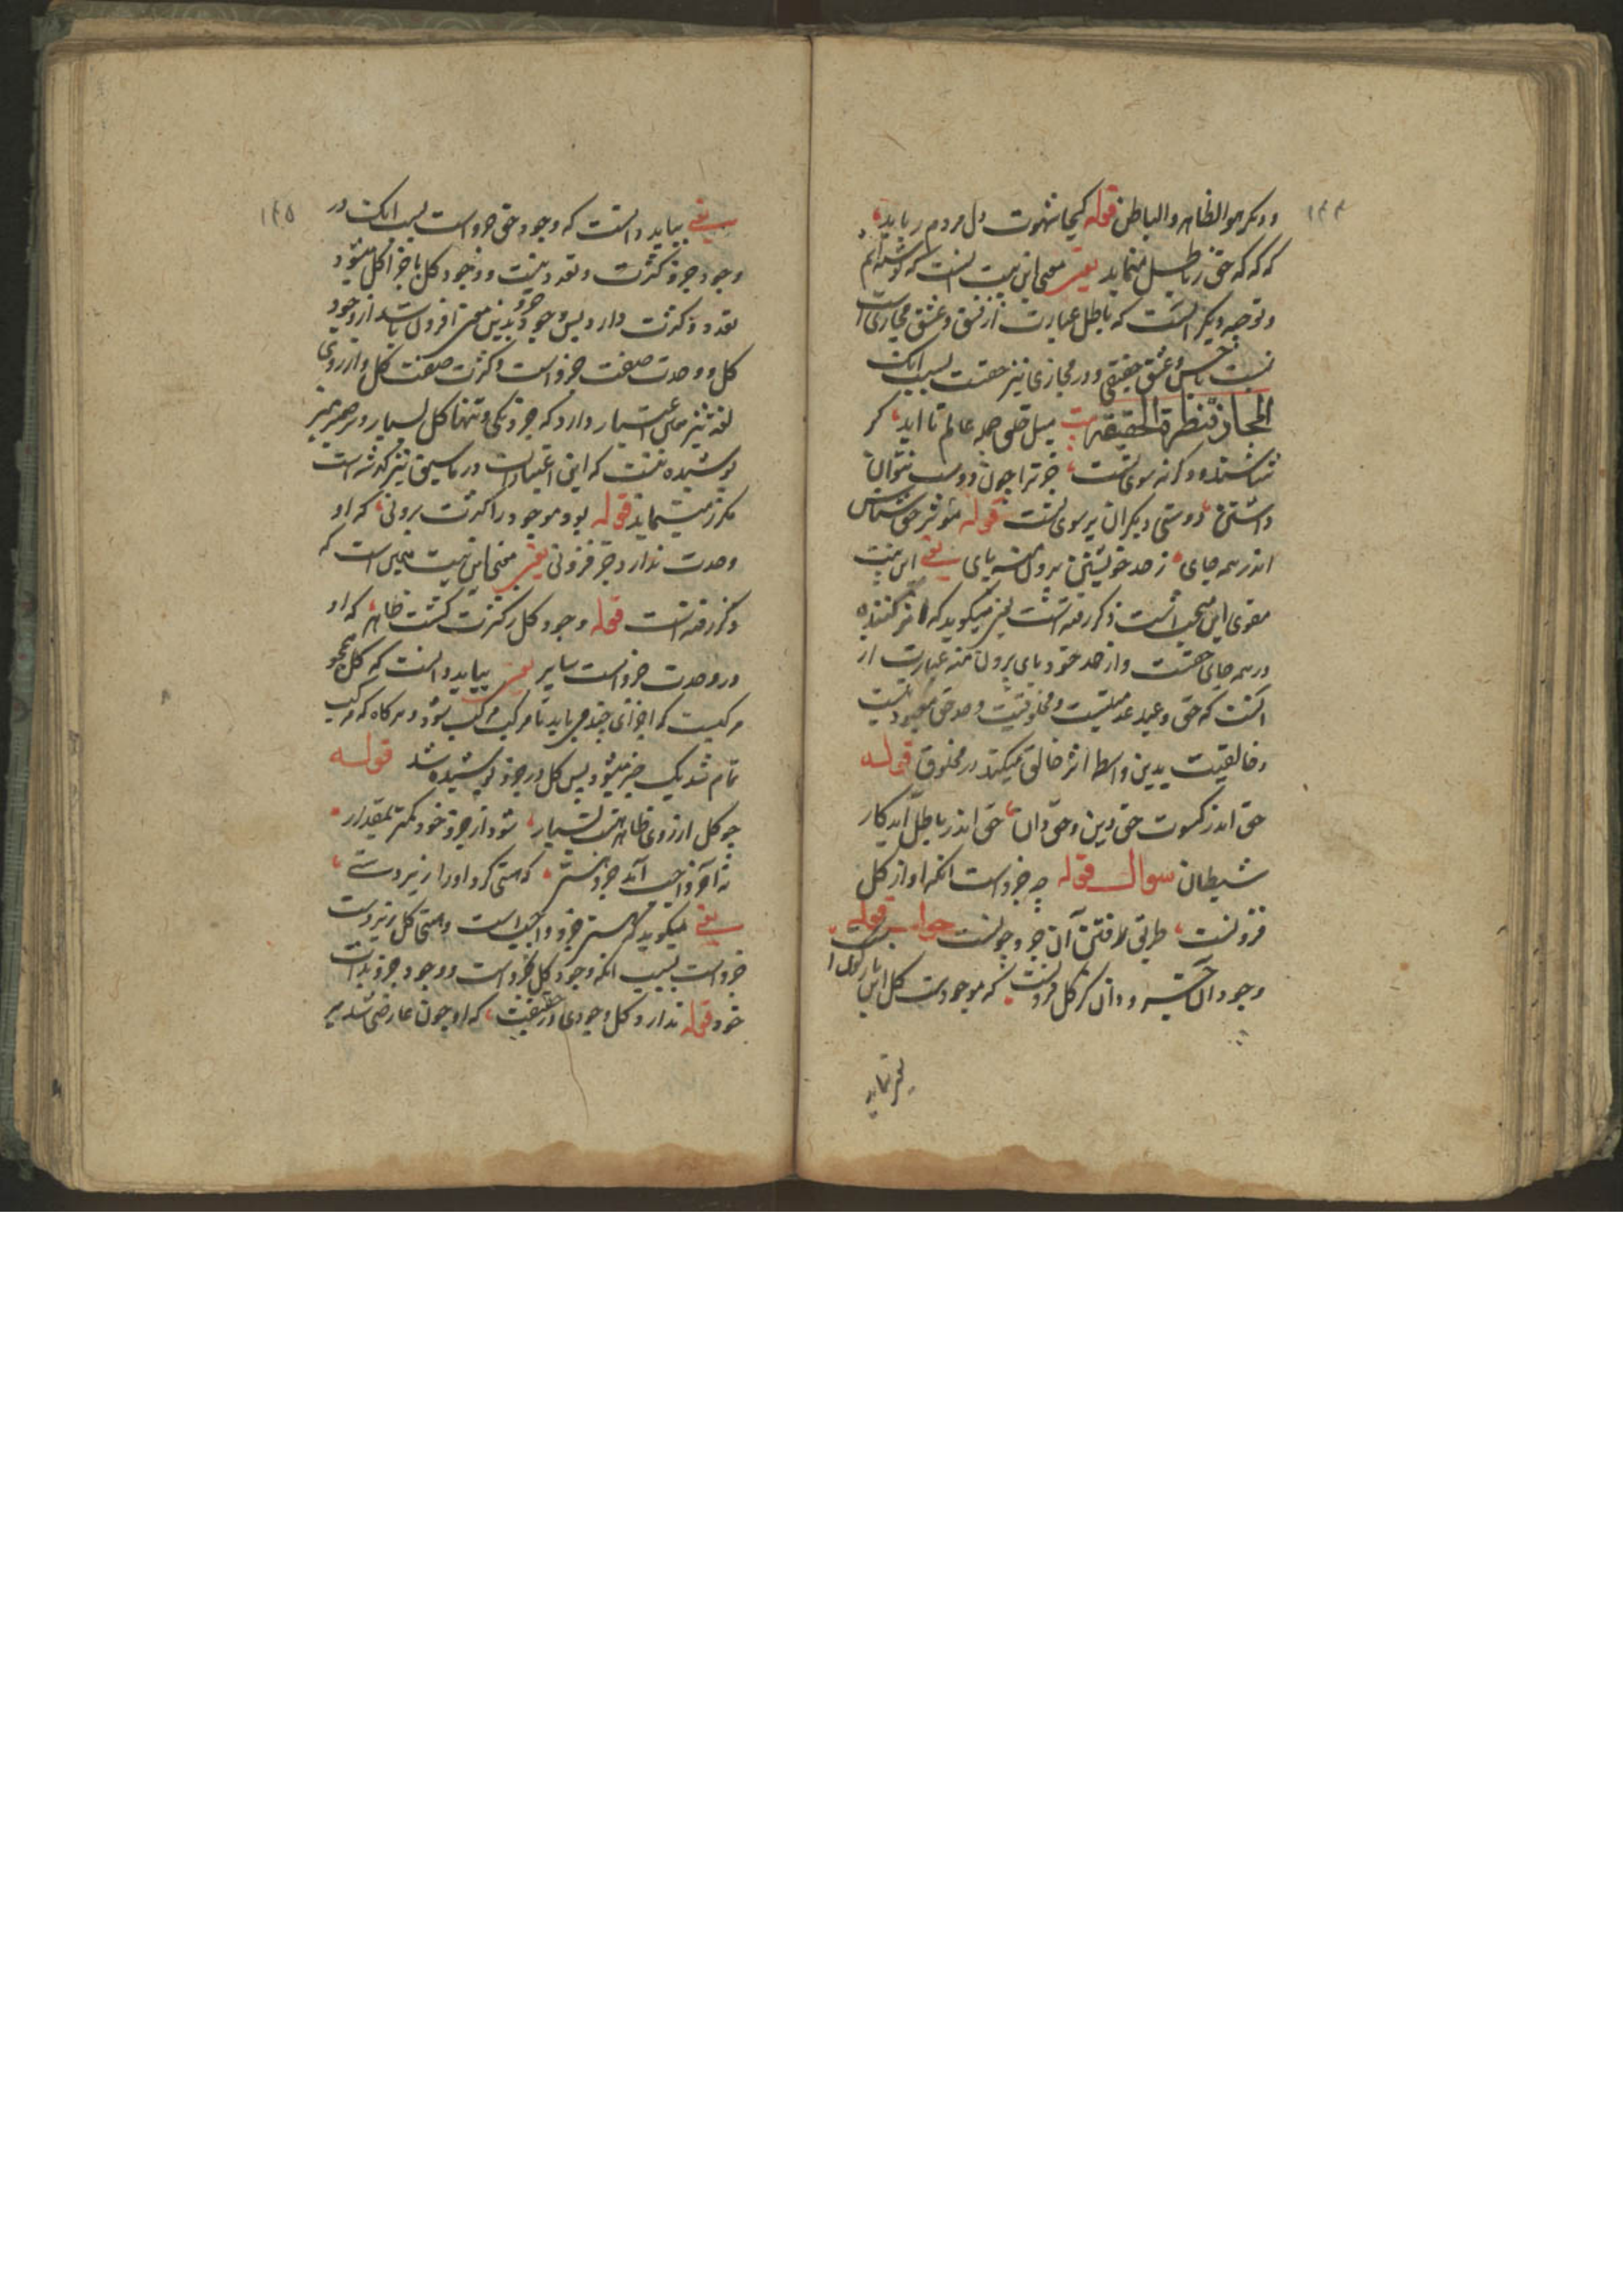 ۱۴۴
ودیگر هو الظاهر والباطن قوله کجا شهوت دل مردم رباید
که که که حق ز باطل مینماید یعنی معنی این بیت اینست که نوشته ایم
و توجیه دیگر انست که باطل عبارت از فسق و عشق مجازی است
نسبت با حسن و عشق حقیقی و در مجازی نیز حقست بسبب انک
المجاز قنطرة الحقیقة بیت میل خلق جمله عالم تا ابد گر
شناسندت وگرنه سوی تست جز ترا چون دوست نتوان
داشتن دوستی دیگران بر بوی تست قوله مؤثر حق شناس
اندر همه جای ز حد خویشتن بیرون منه پای یعنی این بیت
مقوی این مبحث است ذکر رفته است لیک میگوید که اثر کننده
در همه جای حقست و از حد خود پای برون منه عبارت از
انست که حق و عبد عبدیتست و مخلوقیت و حد حق معبودیست
وخالقیت بدین واسطه اثر خالق میکند در مخلوق قوله
حق اندر کسوت حق دین حق دان حق اندر باطل آمد کار
شیطان سوال قوله چه جزو است انکه او از کل
فزونست طریق رفتن آن جزو چونست جواب قوله
وجود آن جزو دان کز کل فزونست که موجودست کل این باژگون است
یعنی بباید
۱۴۵
یعنی بباید دانست که وجود حق جزو است بسبب انک در
وجود جزو کثرت و تعدد نیست و وجود کل باجزا کل میشود
تعدد و کثرت دارد پس وجود جزو بدین معنی افزون باشد از وجود
کل و وحدت صفت جزو است و کثرت صفت کل و از روی
لغة نیز همین اعتبار دارد که جزو یکی و تنها کل بسیار و بر ضمیر منیر
پوشیده نیست که این اعتبارات در ماسبق نیز گذشته است
مکرر نمینماید قوله بود موجود را کثرت برونی که او
وحدت ندارد جز فزونی یعنی معنی این بیت همین است که
ذکر رفته است قوله وجود کل ز کثرت گشت ظاهر که او
در وحدت جزو است سایر یعنی بباید دانست که کل همچو
مرکبست که اجزای چند می باید تا مرکب مرکب شود و هرگاه که مرکب
تمام شد یک چیز میشود پس کل در جزو پوشیده شد قوله
چو کل از روی ظاهر هست بسیار شود از جزو خود کمتر بمقدار
نه آخر واجب آمد جزو هستی که هستی کرد اورا زیر دستی
یعنی میگوید که هستی جزو واجب است و هستی کل زیردست
جزو است بسبب انکه وجود کل بجزو است و وجود جزو بذات
خود قوله ندارد کل وجودی در حقیقت که او چون عارضی شد بر